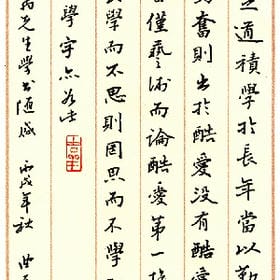 之道積學於長年當以勤
奮則出於酷愛沒有酷
僅藝術而論酷愛第一
學而不思則罔思而不學
學字亦
先生學書隨感 丙戌年秋